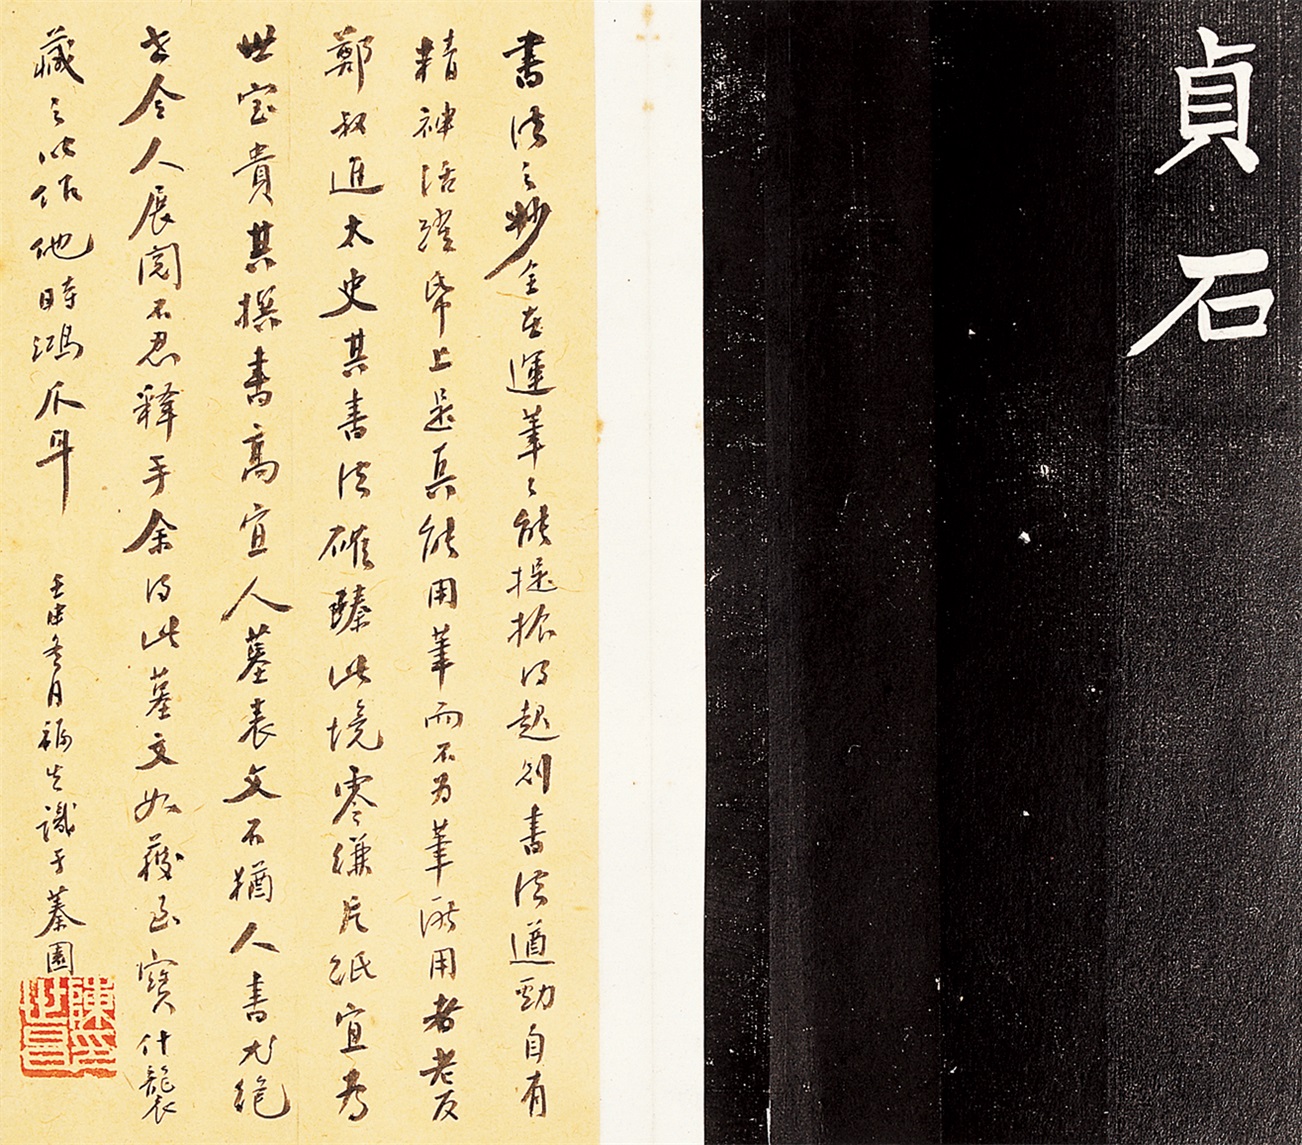 貞石
書法之妙全在運筆筆能提振得起則書法遒勁自有
精神活躍帋上是真能用筆而不為筆所用者老友
鄭叔進太史其書法確臻此境零縑片紙宜為
世宝貴其撰書高宜人墓表文不猶人書尤絕
老令人展閱不忍釋手余得此墓文如獲至寶什襲
藏之以作他時鴻爪耳
壬申冬月福生識于蓁園